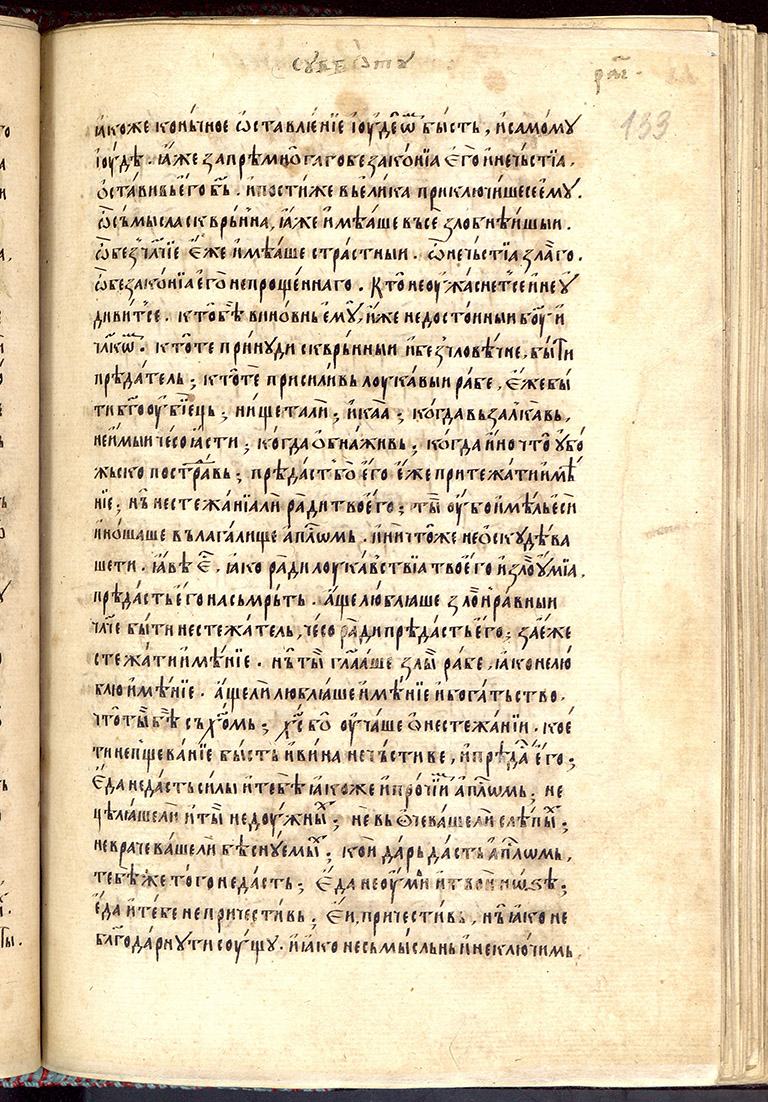 сꙋббѡтꙋ
рл҃г
133
ꙗ҆коже коньчное ѡ҆ставлѥ́нїе і҆ꙋде́ѡⷨ бы́сть , и҆ самомꙋ
і҆ꙋдѣ . ꙗ҆́же за прѣмно́гаго безако́нїа є҆го̀ и҆ нечь́стїа ,
ѡ҆ста́вивь є҆го̀ бь҃ . и҆ пости́же вьѐлика приключи́шесе є҆мꙋ .
ѿ съмысла сквръ́нна , ꙗ҆́же и҆мѣ́аше въсѐ злобнѣ́ишыи .
ѿ безчл҃чїе є҆́же и҆мѣ́аше стра́стныи . ѿ нечь́стїа зла́го .
ѿ безако́нїа є҆го̀ непрощѐннаго . Кто̀ не ѹ҆жа́снетсе и҆ не ѹ҆
диви́тсе . кто̀ бѣ̀ вино́внь є҆мꙋ̀ , и҆́же недосто́иныи бо́ꙋ и҆
чл҃кѡⷨ . кто́ те прину́ди сквръ́нныи и҆ безчловѣ́чне , бы́ти
прѣда́тель ; кто́ те приси́ливь лꙋка́выи ра́бе , є҆́же бы́
ти бг҃оꙋбі́ець ; нищета́ли ; и҆ каа̀ ; когда̀ възалка́вь ,
не и҆мы́и чесо̀ ꙗ҆́сти ; когда̀ ѡ҆бнажи́вь ; когда̀ и҆но что̀ ѹ҆бо́
жьско постра́вь ; прѣда́ст бо̀ є҆го̀ є҆́же притежа́ти и҆мѣ́
нїе ; нь̀ нестежа́нїа ли ра́ди твоѐго ; ты̀ ѹ҆́бо и҆мѣль єсѝ
и҆ но́шаше въ лага́лище а҆пⷭ҇лѡмь . и҆ ничто́же не ѡ҆скꙋдѣ́ва
шети . ꙗ҆́вѣ є҆ⷭ҇ , ꙗ҆́ко ра́ди лꙋка́вствїа твоѐго и҆ злоꙋ́мїа ,
прѣда́сть є҆го̀ на съмръ́ть . а҆́ще люблꙗ́ше злонра́вныи
чл҃че бы́ти нестежа́тель , чесо̀ ра́ди прѣда́сть є҆го̀ ; за є҆́же
стежа́ти и҆мѣ́нїе . нь̀ ты̀ гл҃а́аше злы̀ ра́бе , ꙗ҆́ко не лю́
блю и҆мѣ́нїе . а҆́ще лѝ люблꙗ́ше и҆мѣ́нїе и҆ бога́тьство ,
что̀ ты̀ бѣ̀ съ хⷭ҇о́мь ; хⷭ҇ бо̀ ѹ҆ча́ше ѡ҆ нестежа́нїи . кое́
ти непщева́нїе бы́сть и҆ вина̀ нечь́стиве , и҆ прѣда̀ є҆го̀ ;
Е҆да̀ не да́сть си́лы и҆ тебѣ̀ ꙗ҆́коже и҆ про́чїиⷨ а҆пⷭ҇лѡмь ; не
цѣлꙗ́ше лѝ и҆ ты̀ недꙋ́жныⷯ ; не вь ѡ҆чева́ше лѝ слѣ́пыⷯ ;
не врачева́ше лѝ бѣснꙋ́емыⷯ ; кои́ да́рь да́сть а҆пⷭ҇лѡмь ,
тебѣ́же того̀ не да́сть ; Е҆да̀ не ѹ҆мѝ и҆ твоѝ но́ѕѣ ;
є҆да̀ и҆ тебе не причести́вь ; Е҆́и , причести́вь , нь̀ ꙗ҆́ко не
блг҃ода́рнꙋ ти сꙋ́щꙋ . и҆ ꙗ҆́ко несъмы́сльны и҆ неклю́чимь